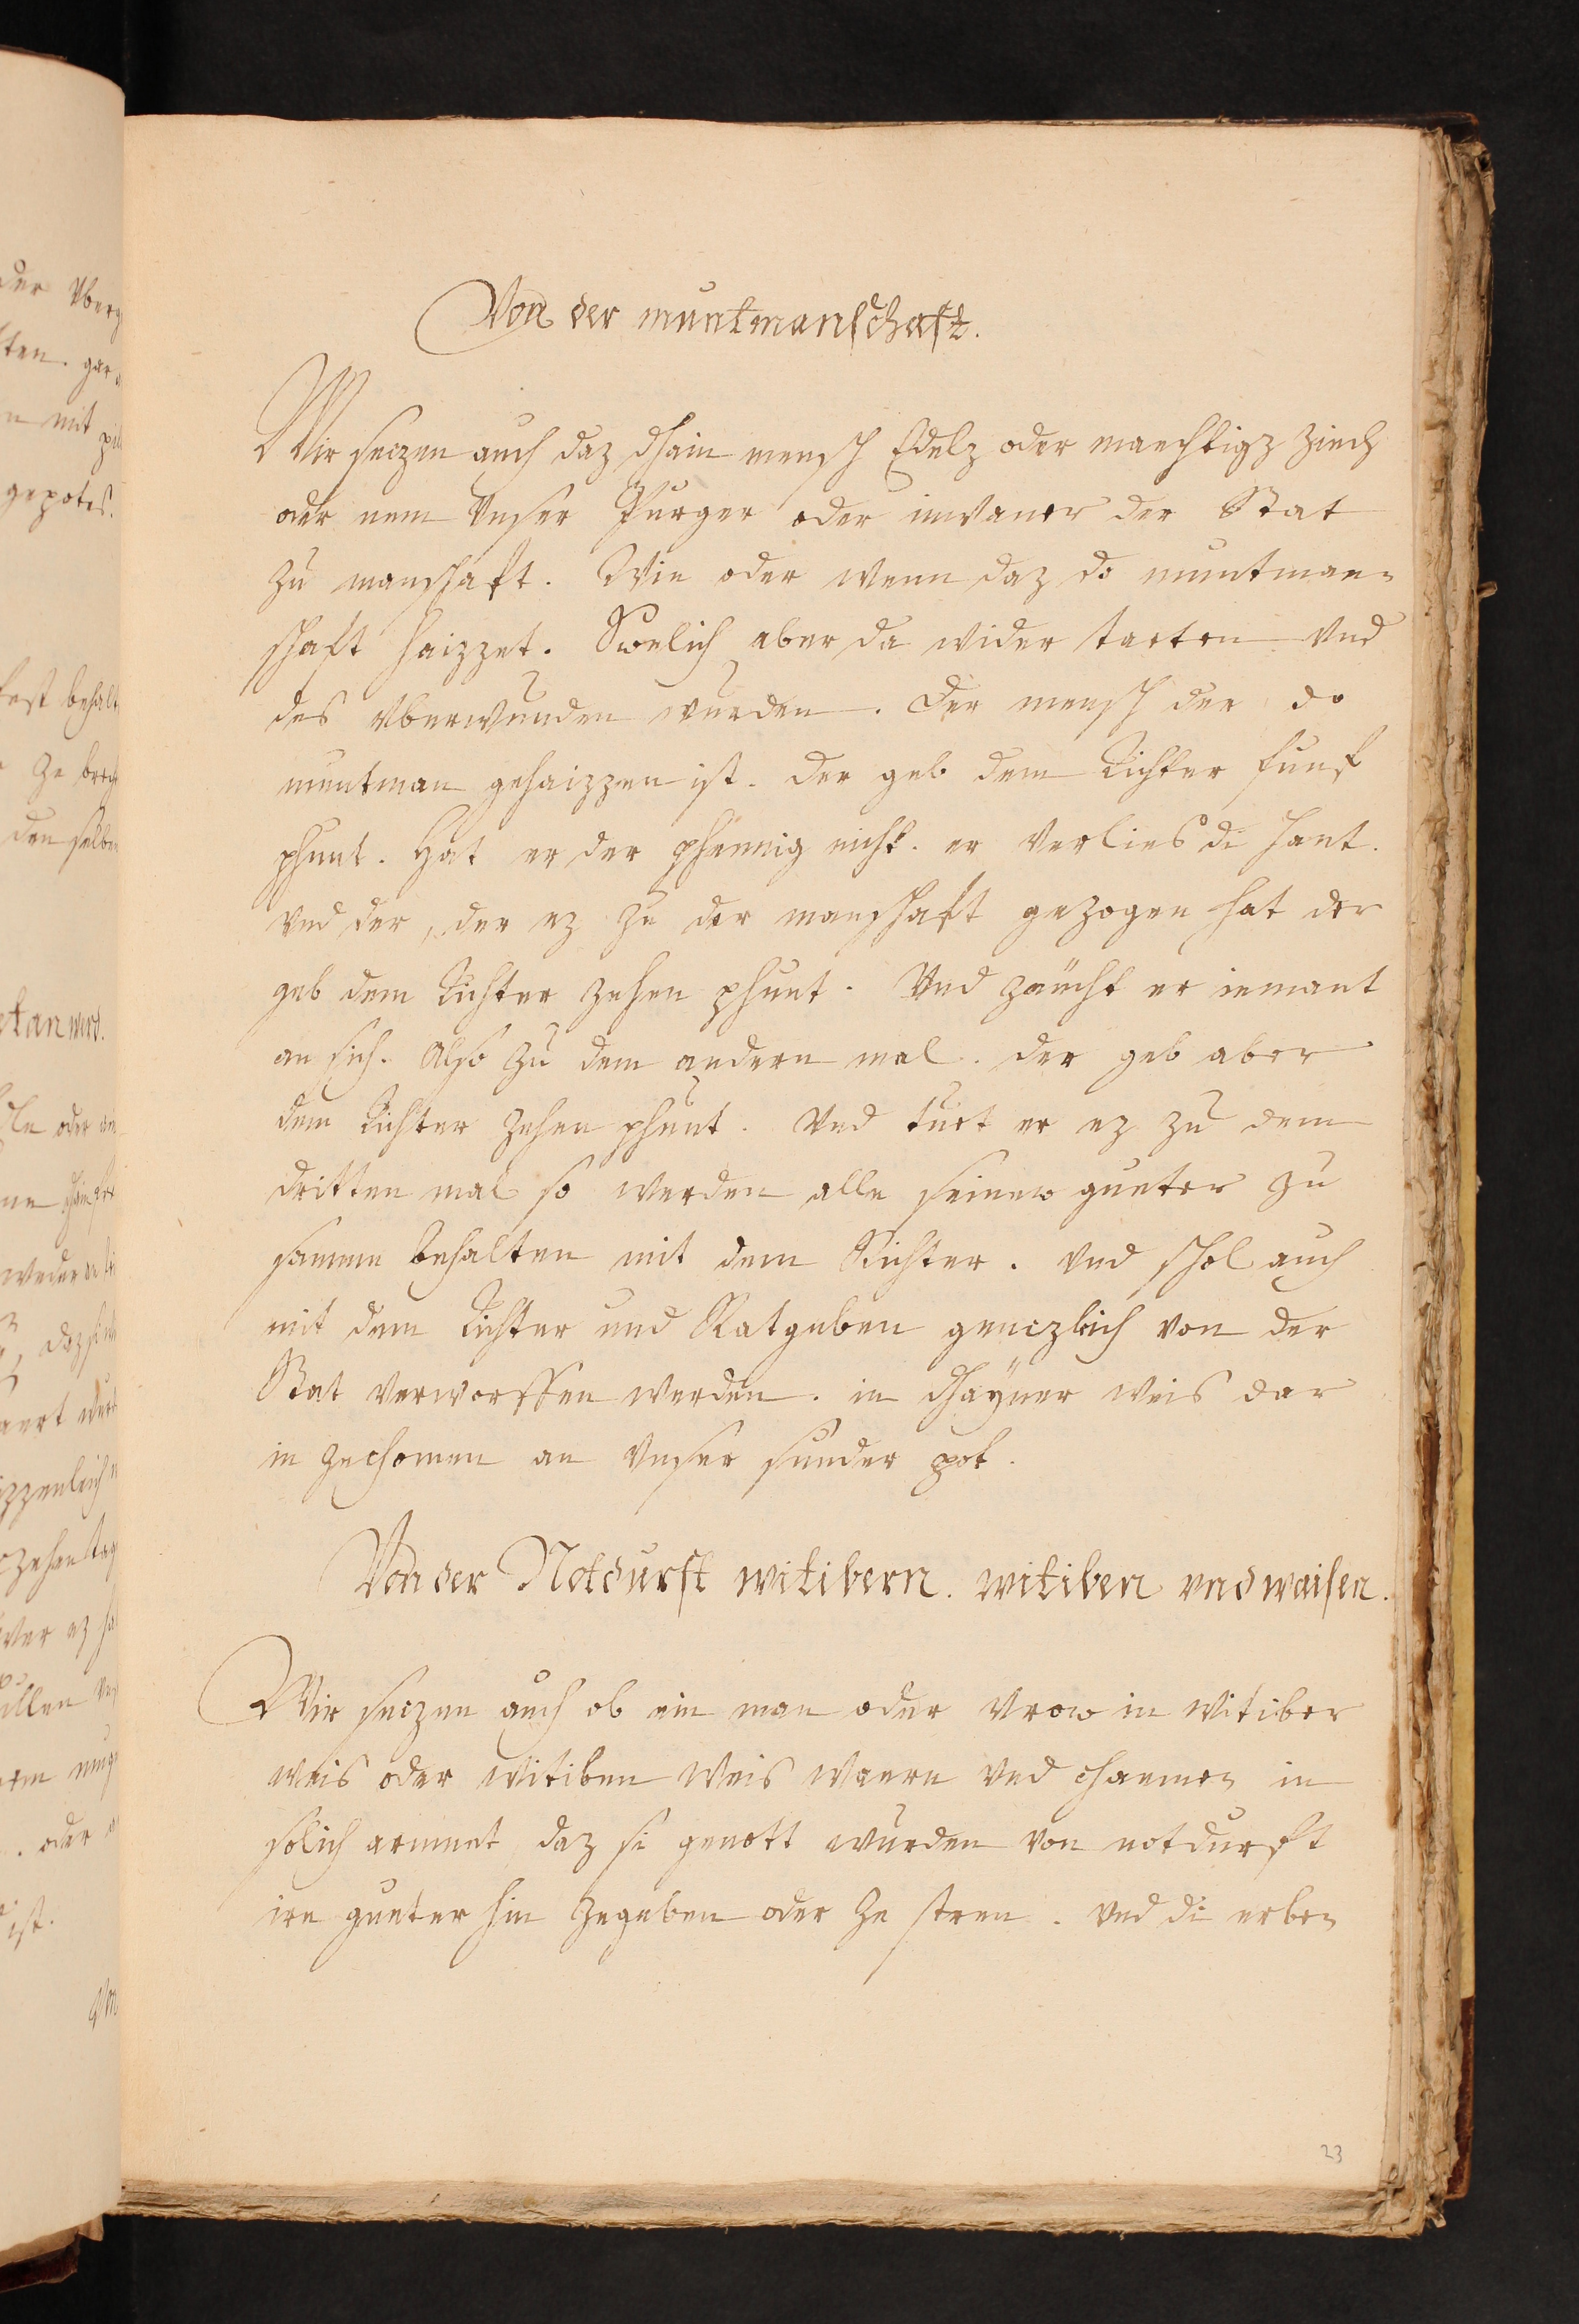 Von der muntmanschaft.
Wir seczen auch daz dhain mensch Edelz oder maechtigz ziech
oder nem Vnser Purger oder inwaner der Stat
zu manschaft. Wie oder wenn daz do muntman-
schaft haizzet. Swelich aber da wider taeten Vnd
des Vberwunden wurden. der mensch der do
muntman gehaizzen ist. der geb dem Richter funf
phunt. Hat er der phennig nicht. er Verlies di hant.
Vnd der, der ez zu der manschaft gezogen hat der
geb dem Richter zehen phunt. Vnd zaucht er iemant
an sich. Also zu dem andern mal. der geb aber
dem Richter zehen phunt. Vnd tuet er ez zu dem
dritten mal so werden alle seinew gueter zu
samm behalten mit dem Richter. Vnd schol auch
mit dem Richter und Ratgeben genczlich von der
Stat verworffen werden. in dhayner weis dar
in ze chomen an Vnser sunder pot.
Von der Notdurft witibern. witiben vnd waisen.
Wir seczen auch ob ein man oder Vrow in Witiber
weis oder Witiben Weis waern Vnd chaemen in
solich armuet daz si genott wurden von notdurft
ire gueter hin ze geben oder ze steen. Vnd di erben
23
der Vber
ten. gar
mit
gepotes.
behalt
ze
den selben
oder
. oder
ist.